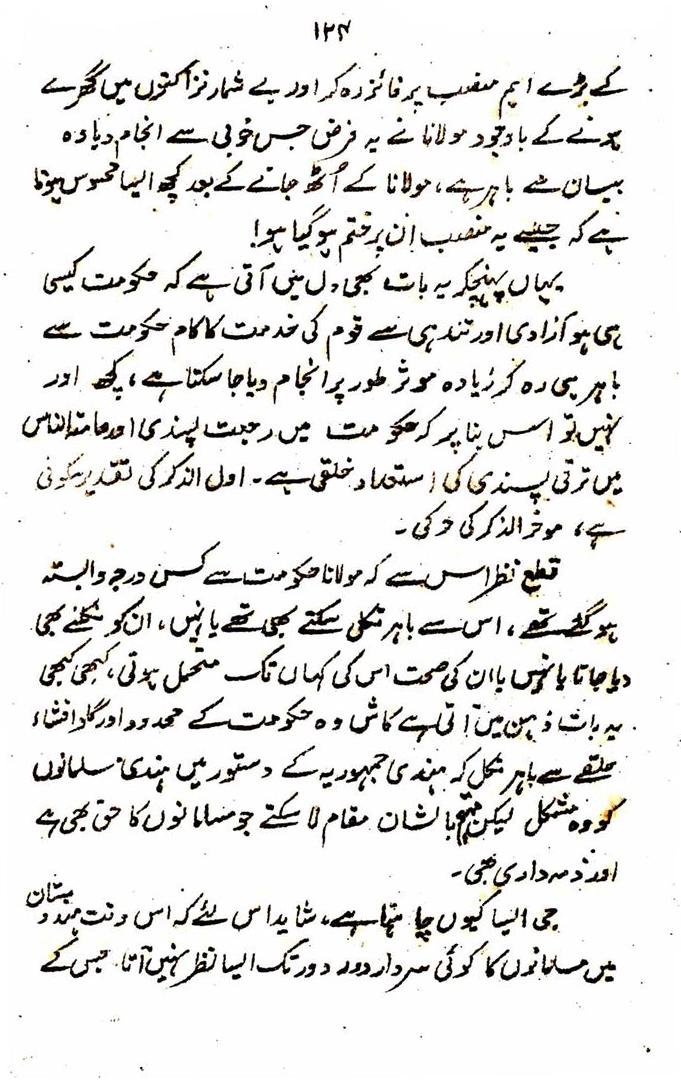 ۱۲۴
کے بڑے اہم منصب پر فائز رہ کر اور بے شمار نزاکتوں میں گھرے
ہونے کے باوجود مولانا نے یہ فرض جس خوبی سے انجام دیا وہ
بیان سے باہر ہے، مولانا کے اُٹھ جانے کے بعد کچھ ایسا محسوس ہوتا
ہے کہ جیسے یہ منصب اِن پر ختم ہو گیا ہو!
یہاں پہنچکر یہ بات بھی دل میں آتی ہے کہ حکومت کیسی
ہی ہو آزادی اور تندہی سے قوم کی خدمت کا کام حکومت سے
باہر ہی رہ کر زیادہ موثر طور پر انجام دیا جا سکتا ہے، کچھ اور
نہیں تو اس بنا پر کہ حکومت میں رجعت پسندی اور عامۃ الناس
میں ترقی پسندی کی استعداد خلقی ہے۔ اول الذکر کی تقدیر سکونی
ہے، موخر الذکر کی حرکی۔
قطع نظر اس سے کہ مولانا حکومت سے کس درجہ وابستہ
ہو گئے تھے، اس سے باہر نکل سکتے بھی تھے یا نہیں، ان کو نکلنے بھی
دیا جاتا یا نہیں یا ان کی صحت اس کی کہاں تک متحمل ہوتی، کبھی کبھی
یہ بات ذہن میں آتی ہے کاش وہ حکومت کے محدود اور گاد افشاء
حلقے سے باہر نکل کر ہندی جمہوریہ کے دستور میں ہندی مسلمانوں
کو وہ مشکل لیکن مہتم بالشان مقام لا سکتے جو مسلمانوں کا حق بھی ہے
اور ذمہ داری بھی۔
جی ایسا کیوں چاہتا ہے، شاید اس لئے کہ اس وقت ہندوستان
میں مسلمانوں کا کوئی سردار دور دور تک ایسا نظر نہیں آتا۔ جس کے